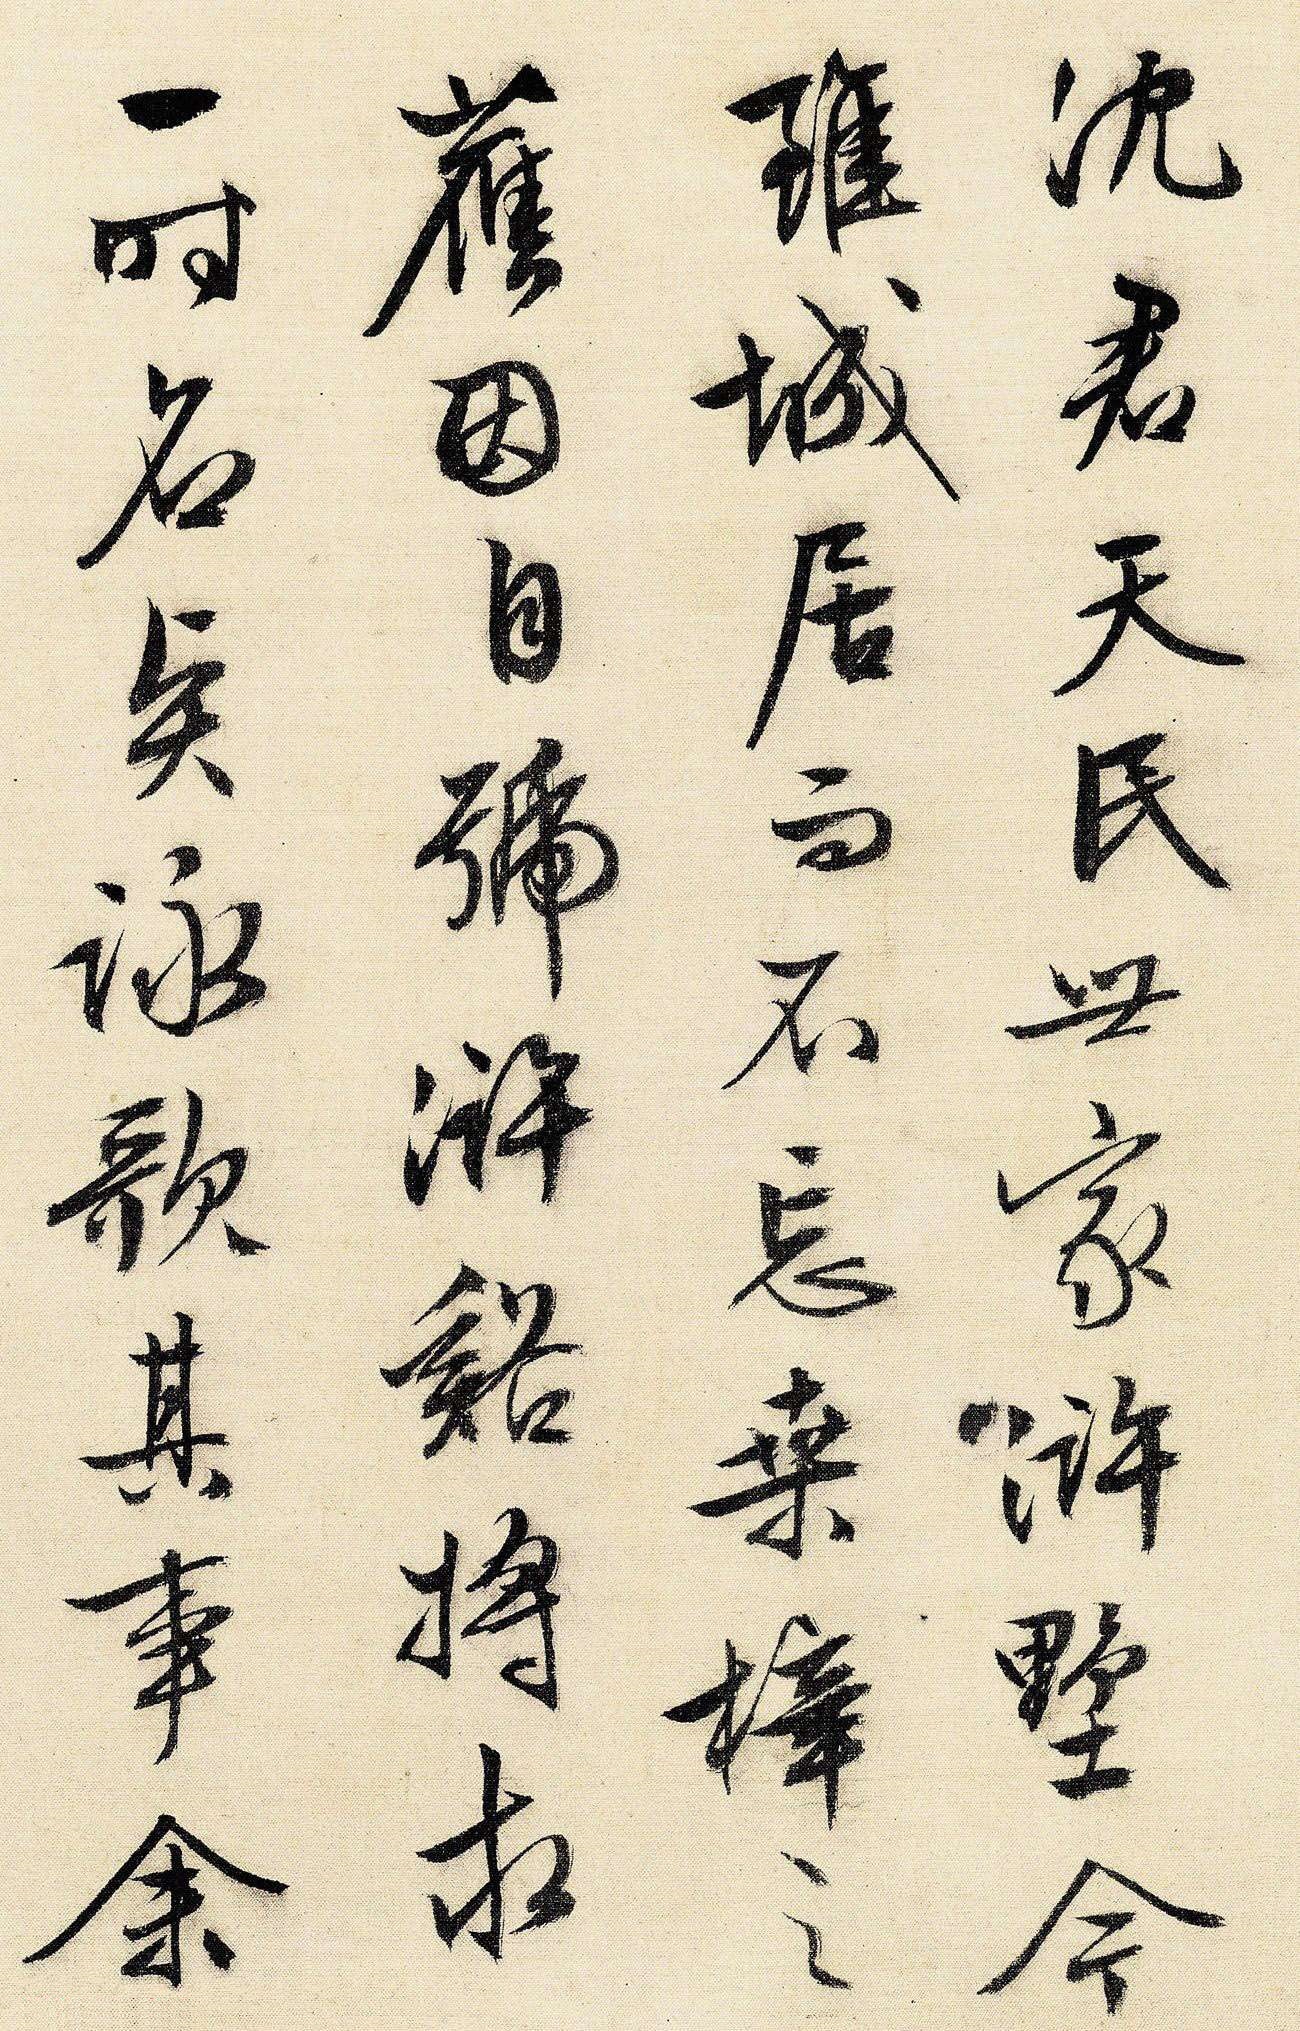 沈君天民世家滸墅今
雖城居而不忘桑梓之
舊因自號滸谿將求
一時名吳詠歌其事余